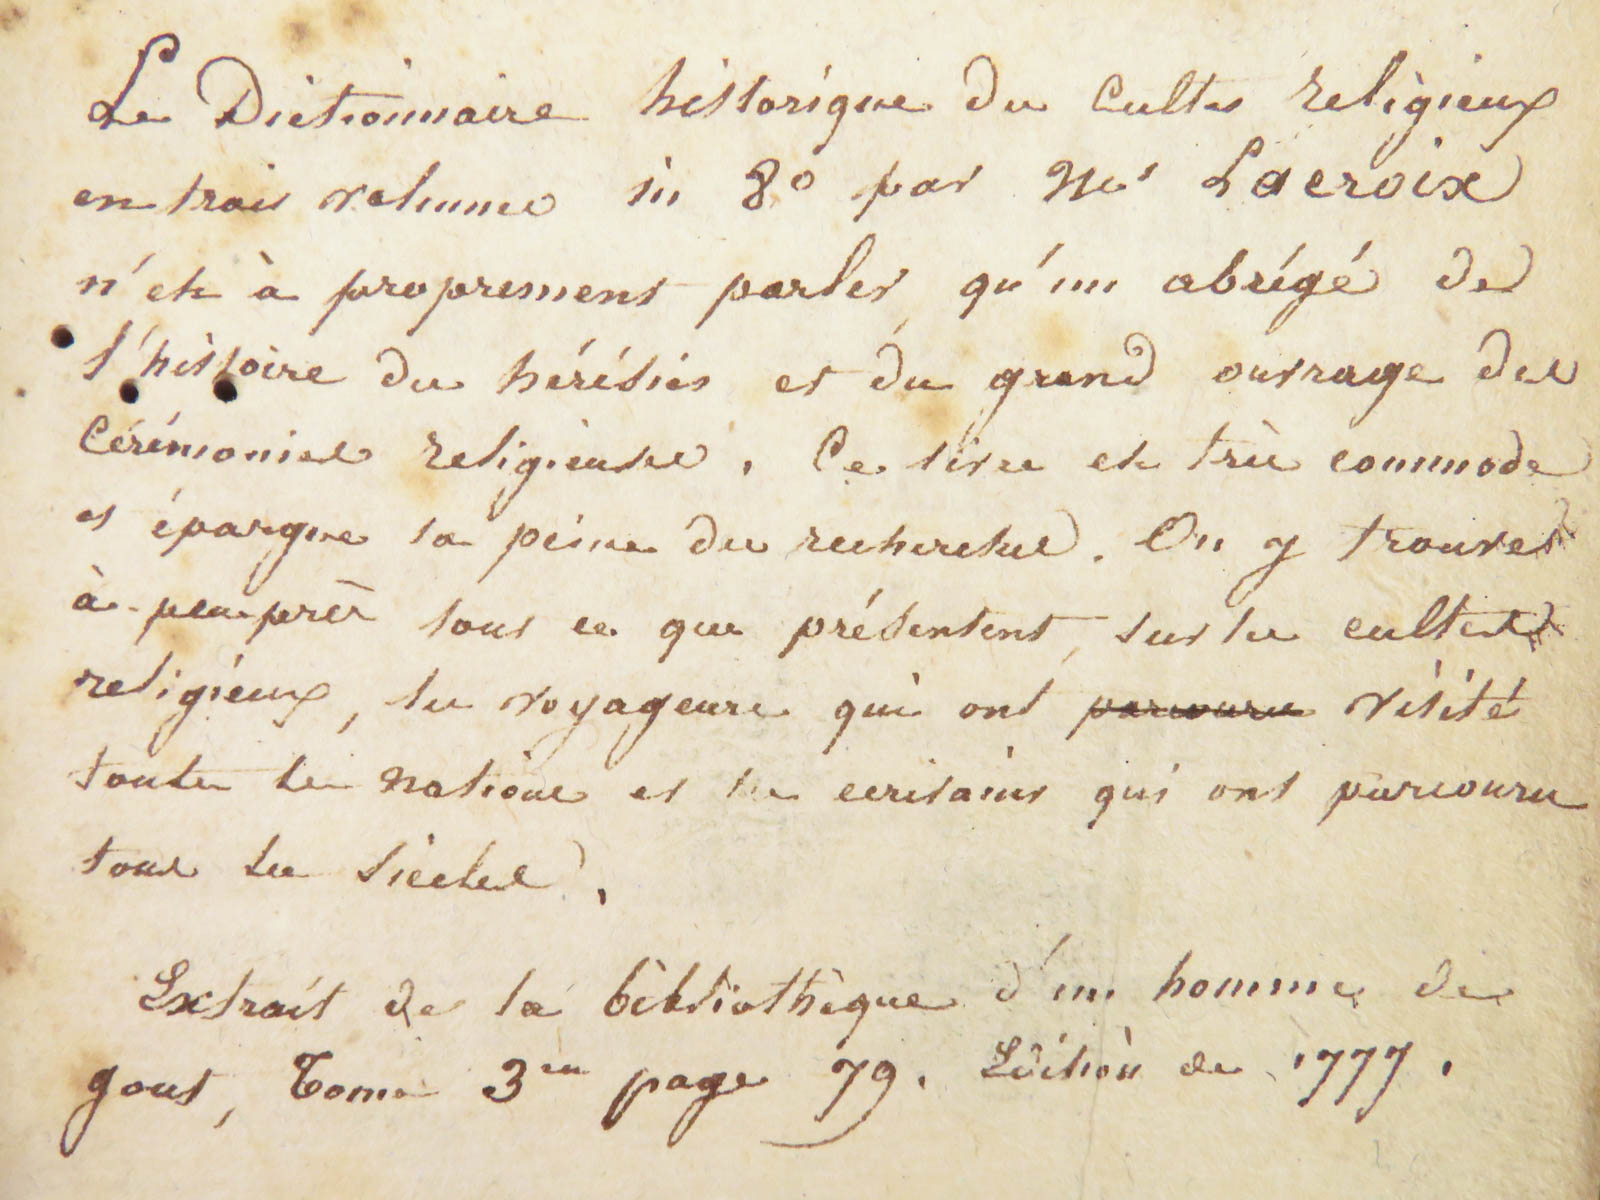 Le Dictionnaire historique des Cultes religieux
en trois volumes in 8º par Mr Lacroix
n'est à proprement parler qu'un abrégé de
l'histoire des hérésies et du grand ouvrage des
Cérémonies religieuses. Ce livre est très commode
et épargne la peine des recherches. On y trouve
à-peu-près tous ce que présentent, sur les cultes
religieux, les voyageurs qui ont parcouru visité
toutes les nations et les ecrivains qui ont parcouru
tous les siecles.
Extrait de la bibliothèque d'un homme de
gout, Tome 3me page 79. Edition de 1777.